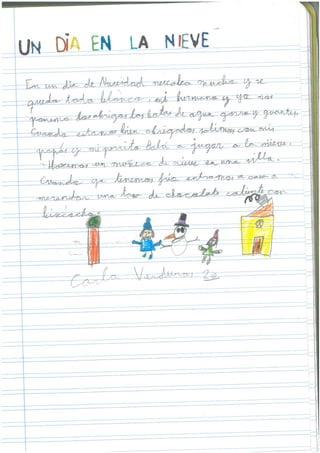 UN DÍA EN LA NIEVE
En un día de Navidad nevaba mucho y se
queda todo blanco, mi hermano y yo nos
ponemos los abrigos las botas de agua, gorro y guantes.
Cuando estamos bien abrigados salimos con mis
papás y mi perrito Lulú a jugar a la nieve.
Hacemos un muñeco de nieve en una silla.
Cuando ya tenemos frío entramos a casa a
merendar una taza de chocolate caliente con
bizcocho.
Carla Verduras 2º